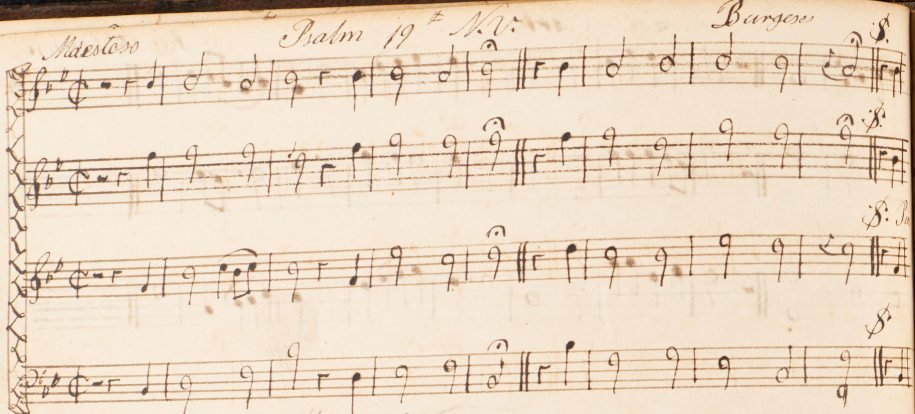 Maestoso Psalm 19th N.V. Burgess